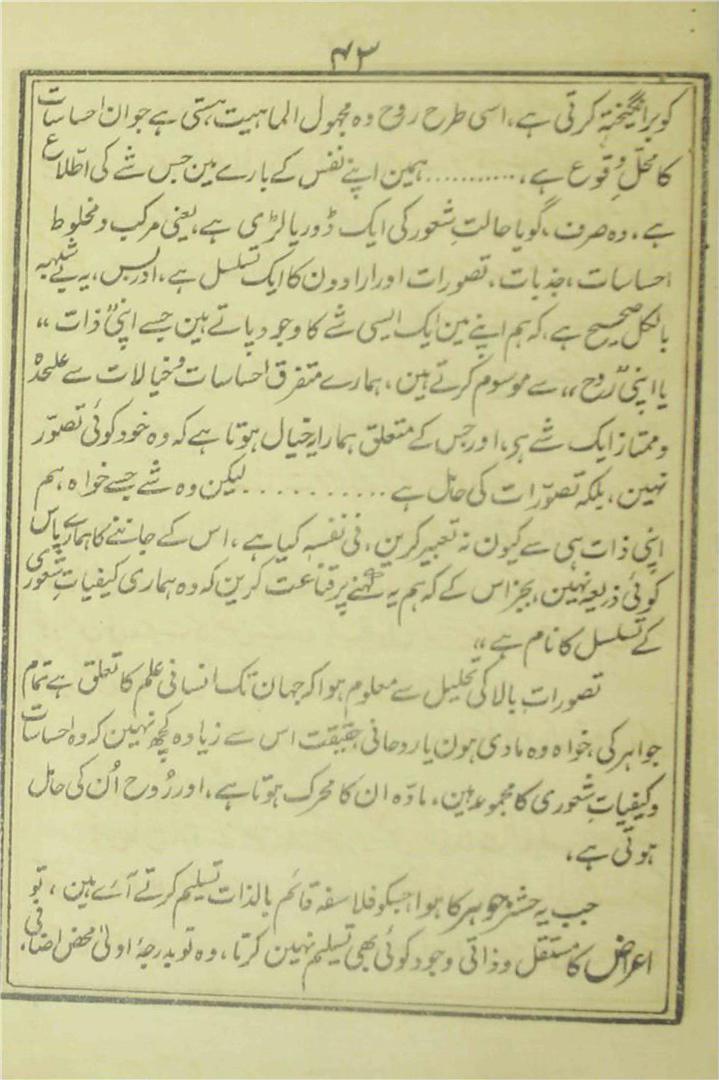 ۴۳
کو برانگیختہ کرتی ہے، اسی طرح روح وہ مجہول الماہیت ہستی ہے جو ان احساسات
کا محلِّ وقوع ہے، ........... ہمین اپنے نفس کے بارے مین جس شے کی اطّلاع
ہے، وہ صرف، گویا حالتِ شعور کی ایک ڈور یا لڑی ہے، یعنی مرکب و مخلوط
احساسات، جذبات، تصورات اور ارادون کا ایک تسلسل ہے، اور بس، یہ بے شبہہ
بالکل صحیح ہے، کہ ہم اپنے مین ایک ایسی شے کا وجود پاتے ہین جسے اپنی ”ذات“
یا اپنی ”رُوح“ سے موسوم کرتے ہین، ہمارے متفرق احساسات و خیالات سے علٰحدہ
و ممتاز ایک شے ہی، اور جس کے متعلق ہمارا خیال ہوتا ہے کہ وہ خود کوئی تصوّر
نہین، بلکہ تصوّرات کی حامل ہے ............ لیکن وہ شے جسے خواہ ہم
اپنی ذات ہی سے کیون نہ تعبیر کرین، فی نفسہٖ کیا ہے، اس کے جاننے کا ہمارے پاس
کوئی ذریعہ نہین، بجز اس کے کہ ہم یہ کہنے پر قناعت کرین کہ وہ ہماری کیفیاتِ شعوری
کے تسلسل کا نام ہے“
تصورات بالا کی تحلیل سے معلوم ہوا کہ جہان تک انسانی علم کا تعلق ہے تمام
جواہر کی، خواہ وہ مادی ہون یا روحانی حقیقت اس سے زیادہ کچھ نہین کہ وہ احساسات
و کیفیاتِ شعوری کا مجموعہ ہین، مادّہ ان کا محرک ہوتا ہے، اور رُوح اُن کی حامل
ہوتی ہے،
جب یہ حشر جوہر کا ہوا جسکو فلاسفہ قائم بالذات تسلیم کرتے آئے ہین، تو
اعراض کا مستقل و ذاتی وجود کوئی بھی تسلیم نہین کرتا، وہ تو بدرجۂ اولیٰ محض اضافی،